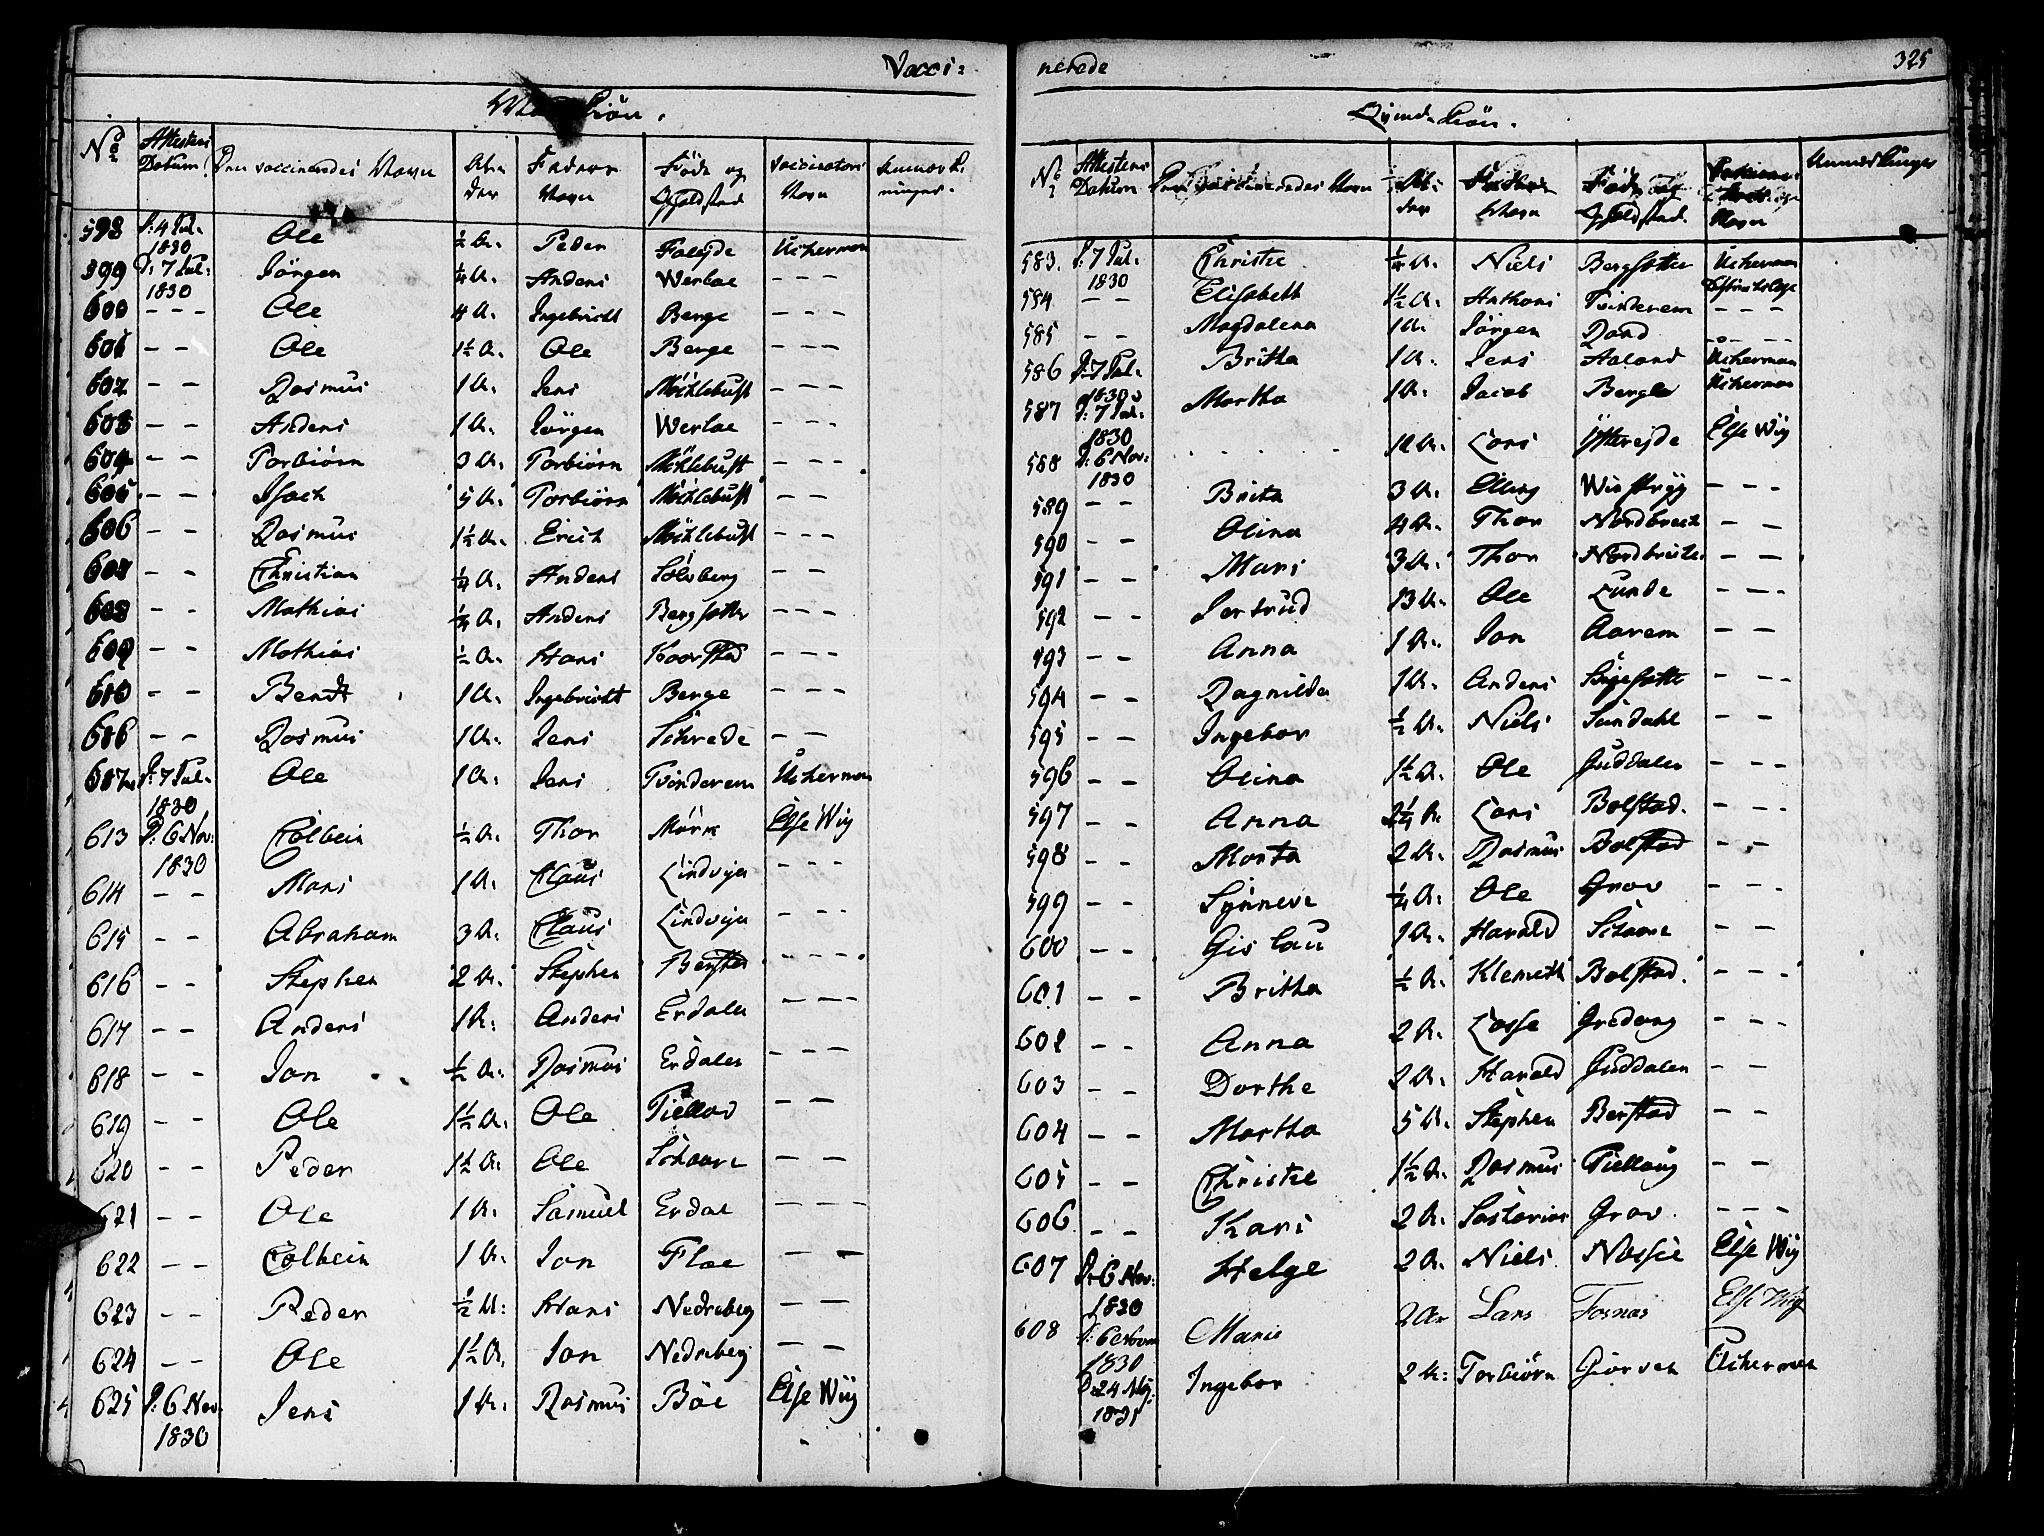 Vacci=
Kiön.
No Attestens Datum Den vaccineredes Navn Alder Faders Navn Föde og Opholdsted Vaccinateurs Navn Anmærkninger.
598 D: 4 Jul. 1830 Ole ½ A. Peder Faleyde Ucherman
599 D: 7 Jul: 1830 Jörgen ¼ A. Anders Werlae – – –
600 – – – Ole 4 A. Ingebricht Berge – – –
601 – – Ole 1½ A. Ole Berge – – –
602 – – Rasmus 1 A. Jens Möchlebust – – –
603 – – Anders 1 A. Jörgen Werlae – – –
604 – – Torbiörn 3 A. Torbiörn Möchlebust – – –
605 – – Isach 5 A. Torbiörn Möchlebust – –
606 – – Rasmus 1½ A. Erich Möchlebust – – –
607 – – Christian ¼ A. Anders Solvberg – –
608 – – Mathias ¼ A. Anders Bergsætter – – –
609 – – Mathias ½ A. Hans – – –
610 – – Bendt 1 A. Ingebricht Berge – – –
– – Rasmus 1 A. Jens Schrede – –
D: 7 Jul. 1830 Ole 1 A. Jens Tvinderem Ucherman
613 D: 6 Nov: 1830 Colbein ½ A. Thor Mörk Else Wiig
614 – – Mons 1 A. Claus Lindvigen – – –
615 – – Abraham 3 A. Claus Lindvigen – – –
616 – – Stephen 2 A. Stephen Berstad – – – –
617 – – Anders 1 A. Anders Erdalen – – –
618 – – Jon ½ A. Rasmus Erdalen – – –
619 – – Ole 1½ A. Ole – –
620 – – Peder 1½ A. Ole Schaare – – –
621 – – Ole 1 A. Samuel Erdal – – –
622 – – Colbein 1 A. Jon Floe – –
623 – – Peder ½ A. Hans Nedreberg – –
624 – – Ole 1½ A. Jon Nedreberg – –
625 D: 6 Nov. 1830 Jens 1 A. Rasmus Böe Else Wiig
nerede 325
Qvinde-Kiön.
No Attestens Datum Den Vaccineredes Navn Alder Faders Navn Föde og Opholdsted. Navn Anmærkninger
583. D: 7 Jul. 1830 Christie ¼ A. Niels Bergsætter Ucherman
584 – – Elisabeth 1½ A. Anthoni Tvinderem – – –
585 – – Magdalena 1 A. Jörgen – – – –
586 D: 7 Jul. 1830 Britha 1 A. Jens Aaland Ucherman
587 D: 7 Jul: 1830 Martha 1 A. Jacob Berge Ucherman
588 D: 6 Nov: 1830 . . . . . Lars Ytterejde Else Wiig
589 – – Brita 3 A. Elling – – –
590 – – Olina 4 A. Thor Nordbrech – – –
591 – – Mari 3 A. Thor – –
592 – – Jertrud 13 A. Ole Lunde – – –
593 – – Anna 1 A. Jon Aarem – –
594 – – Ragnilda 1 A. Anders – – –
595 – – Ingebor ½ A. Niels Sundahl – –
596 – – Olina 1½ A. Ole Guddalen – – –
597 – – Anna 2¼ A. Lars Bolstad. – – –
598 – – Marta 2 A. Rasmus Bolstad – –
599 – – Synneve ¼ A. Ole Grov – – –
600 – – Gislau 1 A. Harald Schaare – – –
601 – – Britha ½ A. Klemeth Bolstad. – – –
602 – – Anna 2 A. Lasse – – –
603 – – Dorthe 2 A. Harald Guddalen – –
604 – – Martha 5 A. Stephen Berstad – –
605 – – Christie 1½ A. Rasmus – –
606 – – Kari 2 A. Grov. – – –
607 D: 6 Nov: 1830 Helge 2 A. Niels Nossie Else Wiig
608 1830 Marie 2 A Lars Fosnæs Else Wiig
D: 24 1831 Ingebor 2 A: Torbiörn Giorven Ucherman